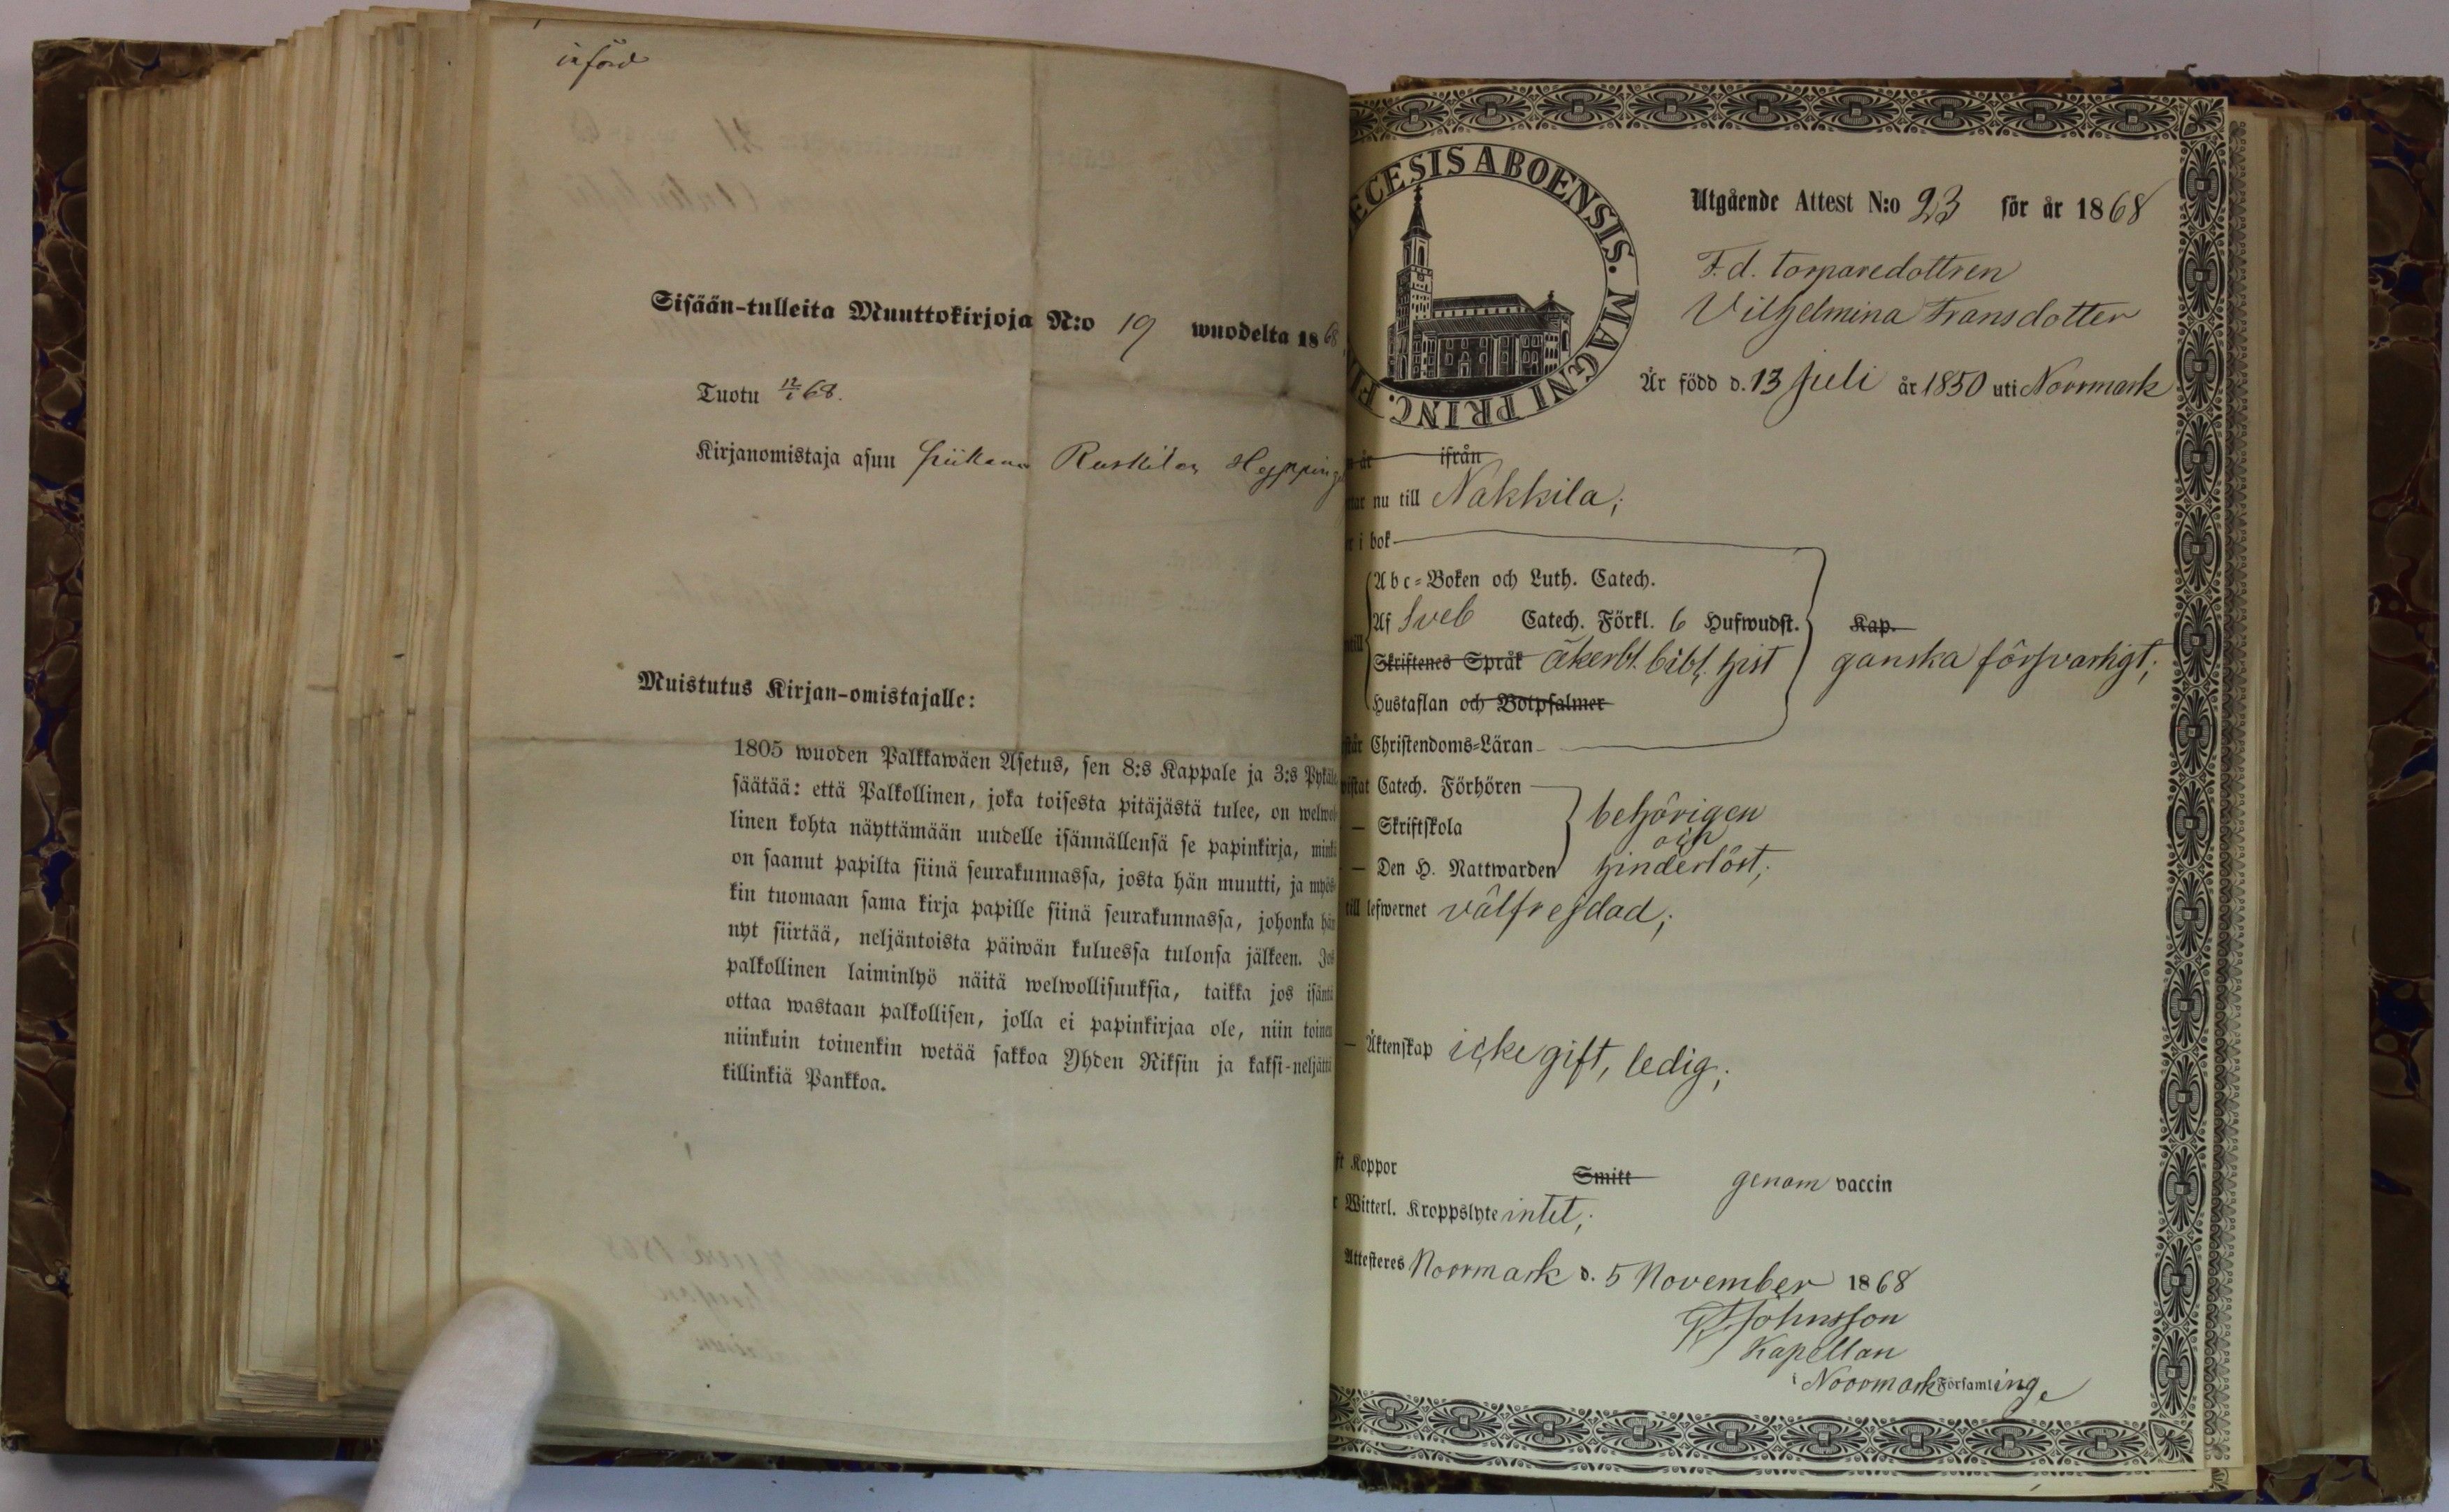 införd
Sisään-tulleita Muuttokirjoja N:o 19 wuodelta 1868
Tuotu 12/1 68.
Kirjanomistaja asuu piikana Ruskilan Heppingi
Muistutus Kirjan-omistajalle:
1805 wuoden Palkkawäen Asetus, sen 8:s Kappale ja 3:s Pykälä
säätää: että Palkollinen, joka toisesta pitäjästä tulee, on welwol-
linen kohta näyttämään uudelle isännällensä se papinkirja, minkä
on saanut papilta siinä seurakunnassa, josta hän muutti, ja myös-
kin tuomaan sama kirja papille siinä seurakunnassa, johonka hän
nyt siirtää, neljäntoista päiwän kuluessa tulonsa jälkeen. Jos
palkollinen laiminlyö näitä welwollisuuksia, taikka jos isäntä
ottaa wastaan palkollisen, jolla ei papinkirjaa ole, niin toinen
niinkuin toinenkin wetää sakkoa Yhden Riksin ja kaksi-neljättä
killinkiä Pankkoa.
ECESIS ABOENSIS. MAGNI PRINC. FI
Utgående Attest N:o 23 för år 1868
F.d. torparedottren
Vilhelmina Fransdotter
Är född d. 13 Juli år 1850 uti Norrmark
är ifrån
tar nu till Nakkila;
r i bok
Abc-Boken och Luth. Catech.
Af Sveb Catech. Förkl. 6 Hufwudst. Kap.
Skriftenes Språk åkerbl. bibl. hist ganska försvarligt;
Hustaflan och Botpsalmer
står Christendoms-Läran
wistat Catech. Förhören
— Skriftskola behörigen
och
— Den H. Nattwarden hinderlöst;
till lefwernet välfrejdad;
— Äktenskap icke gift, ledig;
ft Koppor Smitt genom vaccin
r Witterl. Kroppslyte intet;
Attesteres Norrmark d. 5 November 1868
Johnsson
Kapellan
i Norrmark Församling